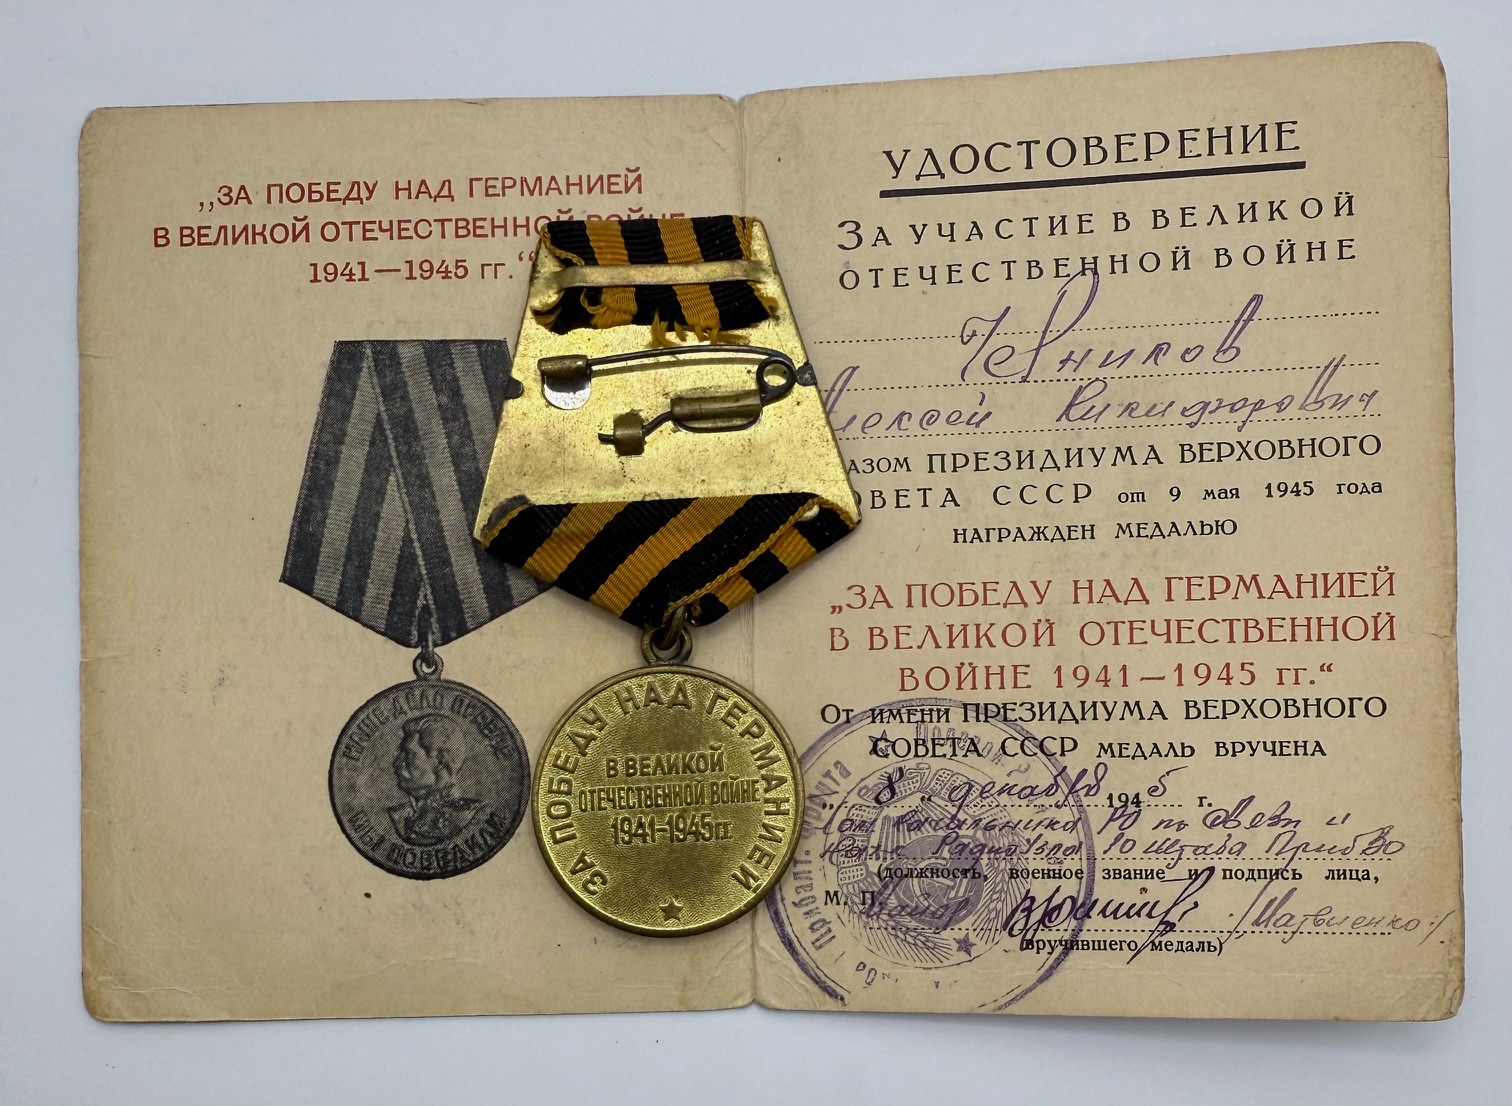 „ЗА ПОБЕДУ НАД ГЕРМАНИЕЙ
В ВЕЛИКОЙ ОТЕЧЕСТВЕННОЙ ВОЙНЕ
1941—1945 гг.“
НАШЕ ДЕЛО ПРАВОЕ
МЫ ПОБЕДИЛИ
ЗА ПОБЕДУ НАД ГЕРМАНИЕЙ
В ВЕЛИКОЙ
ОТЕЧЕСТВЕННОЙ ВОЙНЕ
1941-1945гг
УДОСТОВЕРЕНИЕ
ЗА УЧАСТИЕ В ВЕЛИКОЙ
ОТЕЧЕСТВЕННОЙ ВОЙНЕ
лексей Никифорович
азом ПРЕЗИДИУМА ВЕРХОВНОГО
ОВЕТА СССР от 9 мая 1945 года
НАГРАЖДЕН МЕДАЛЬЮ
„ЗА ПОБЕДУ НАД ГЕРМАНИЕЙ
В ВЕЛИКОЙ ОТЕЧЕСТВЕННОЙ
ВОЙНЕ 1941—1945 гг.“
От имени ПРЕЗИДИУМА ВЕРХОВНОГО
СОВЕТА СССР МЕДАЛЬ ВРУЧЕНА
„8“ декабря 1945 г.
Начальника РО по
Радиоузла РО штаба ПрибВО
(должность, военное звание и подпись лица,
М. П. Майор /Матвиенко/
вручившего медаль)